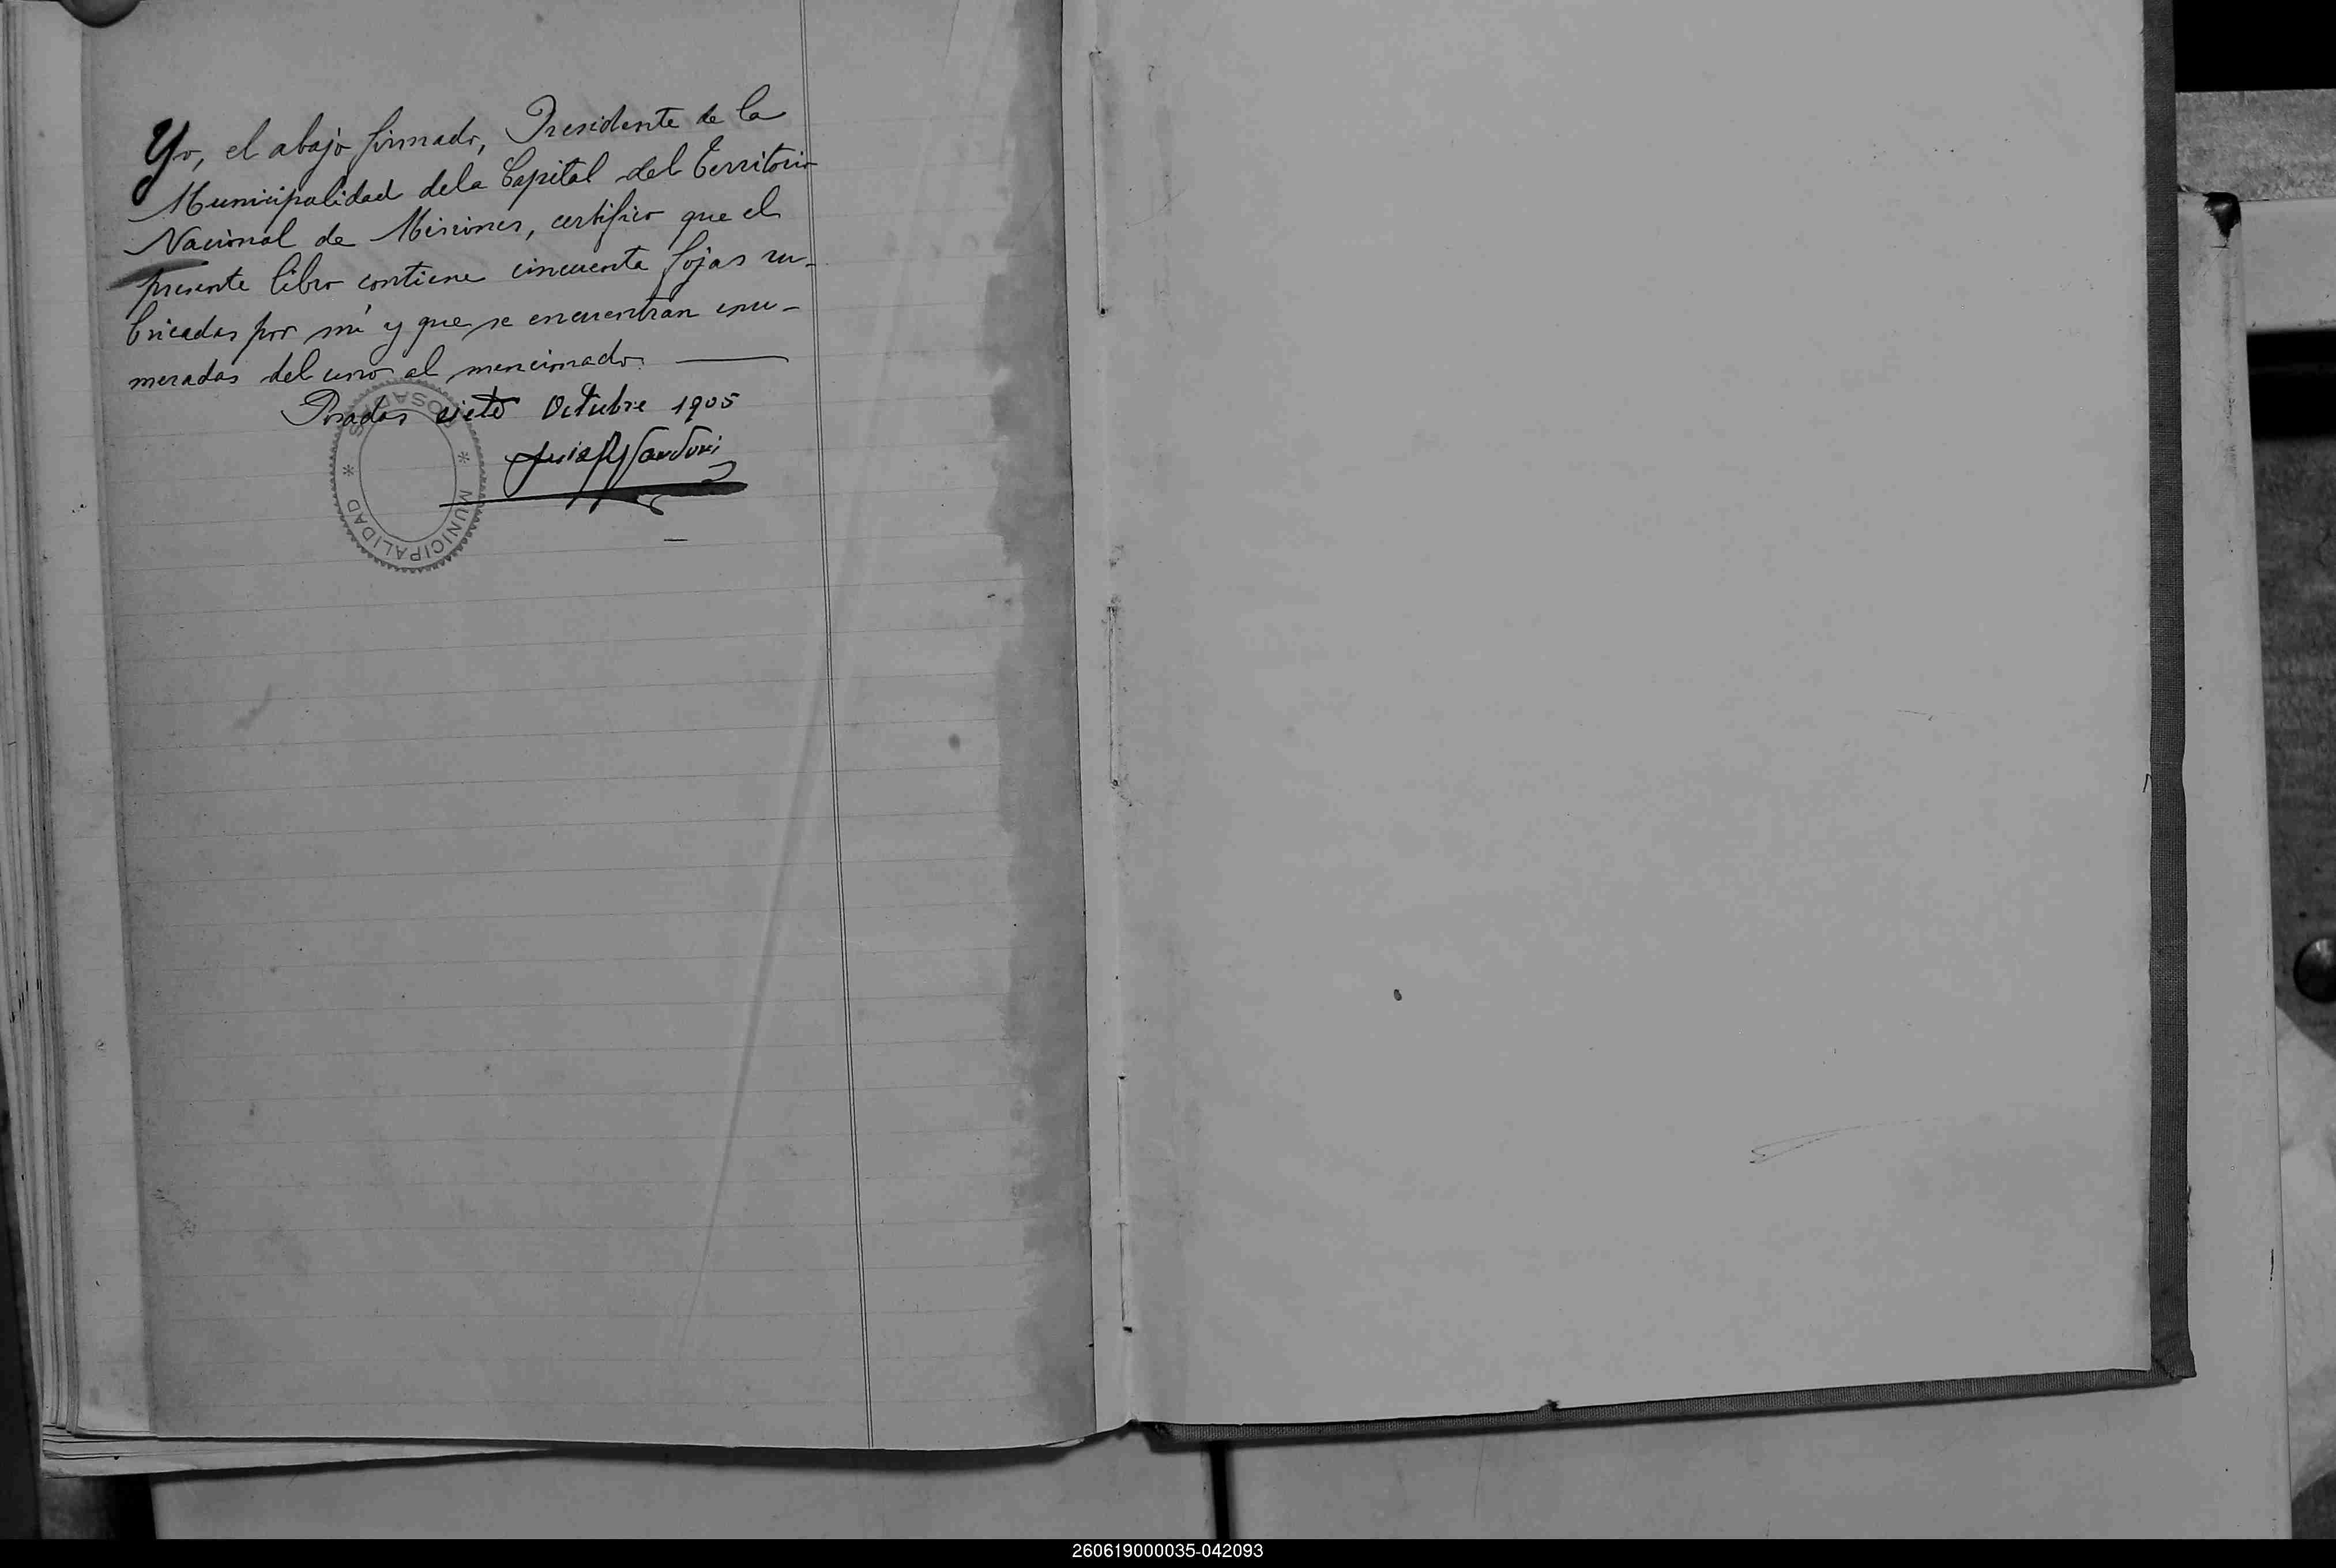 Yo, el abajo firmado, Presidente de la
Municipalidad dela Capital del Territorio
Nacional de Misiones, certifico que el
presente libro contiene cincuenta fojas ru-
bricadas por mí y que se encuentran enu-
meradas del uno al mencionado.
Posadas siete Octubre 1905
MUNICIPALIDAD * POSADAS *
260619000035-042093